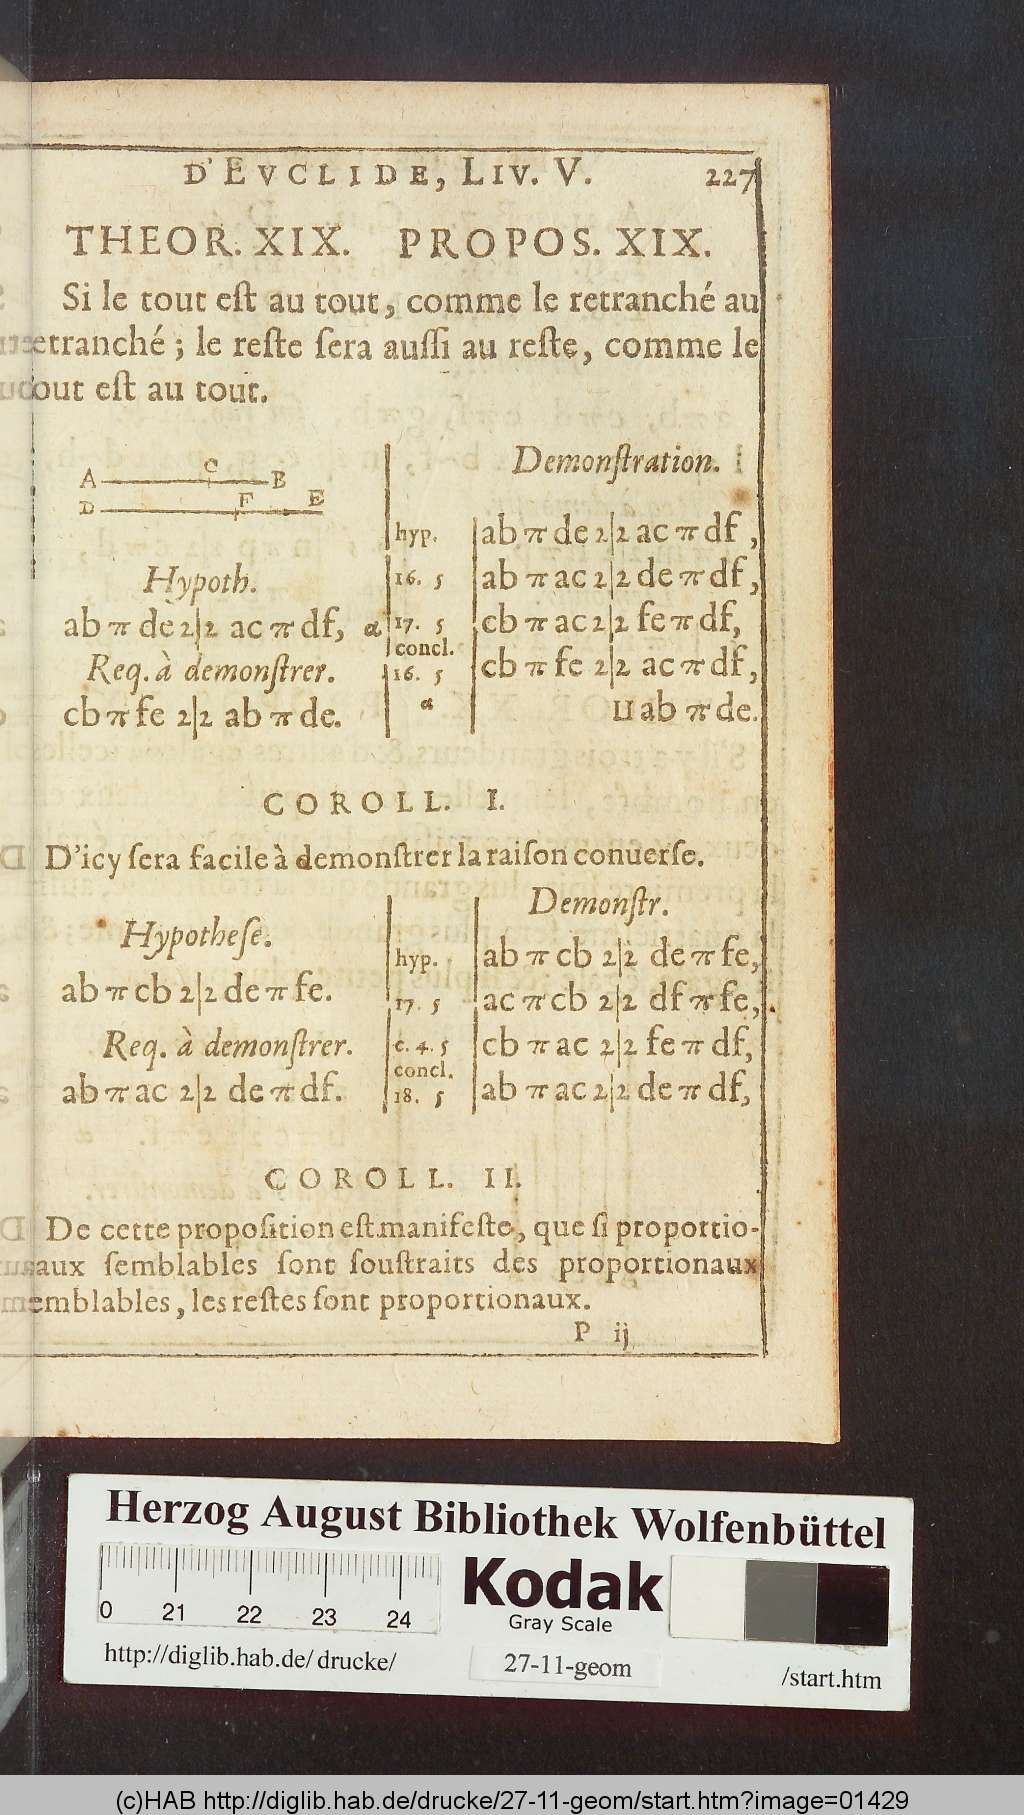 D'EVCLIDE, LIV. V. 227
THEOR. XIX. PROPOS. XIX.
Si le tout eſt au tout, comme le retranché au
retranché ; le reſte ſera auſſi au reſte, comme le
tout eſt au tout.
A C B
D F E
Hypoth.
ab π de 2|2 ac π df, α
Req. à demonſtrer.
cb π fe 2|2 ab π de.
Demonſtration.
hyp. ab π de 2|2 ac π df,
16. 5 ab π ac 2|2 de π df,
17. 5 cb π ac 2|2 fe π df,
concl.
16. 5 cb π fe 2|2 ac π df,
α II ab π de.
COROLL. I.
D'icy ſera facile à demonſtrer la raiſon conuerſe.
Hypotheſe.
ab π cb 2|2 de π fe.
Req. à demonſtrer.
ab π ac 2|2 de π df.
Demonſtr.
hyp. ab π cb 2|2 de π fe,
17. 5 ac π cb 2|2 df π fe,
c. 4. 5 cb π ac 2|2 fe π df,
concl.
18. 5 ab π ac 2|2 de π df,
COROLL. II.
De cette propoſition eſt manifeſte, que ſi proportio-
aux ſemblables ſont ſouſtraits des proportionaux
ſemblables, les reſtes ſont proportionaux.
P ij
Herzog August Bibliothek Wolfenbüttel
0 21 22 23 24
Kodak
Gray Scale
http://diglib.hab.de/drucke/ 27-11-geom /start.htm
(c)HAB http://diglib.hab.de/drucke/27-11-geom/start.htm?image=01429